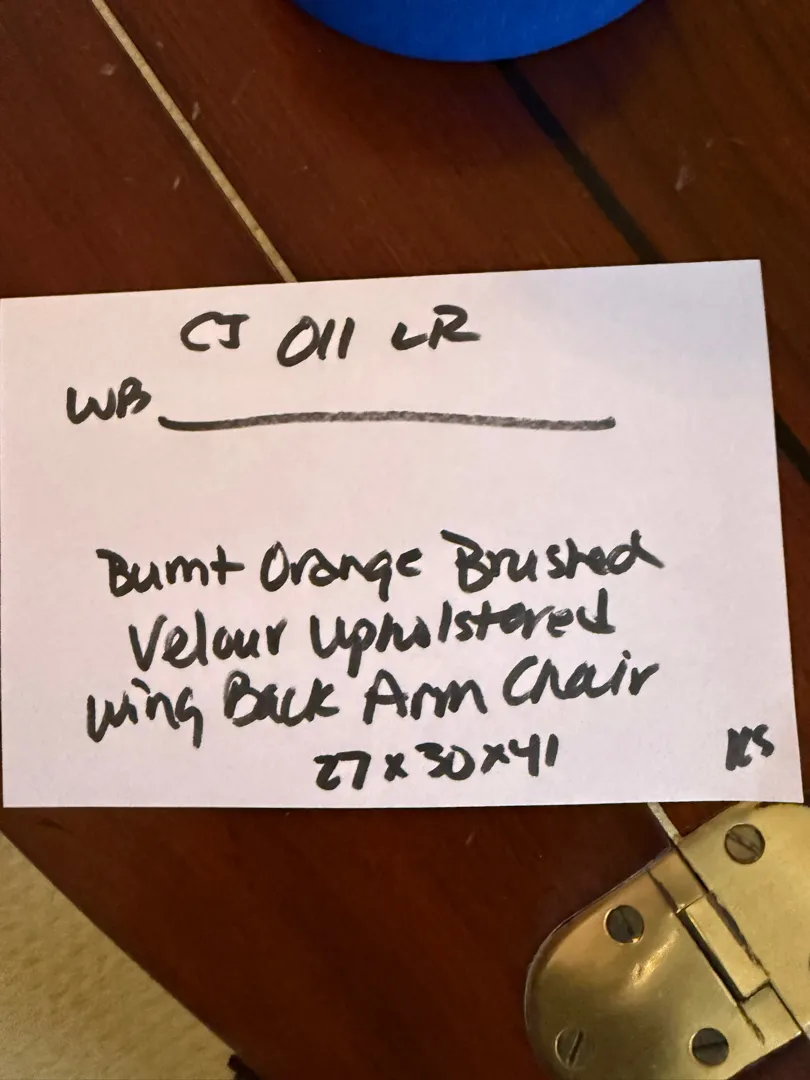 CJ 011 LR
WB
Burnt Orange Brushed
Velour Upholstered
Wing Back Arm Chair
27 x 30 x 41
KS